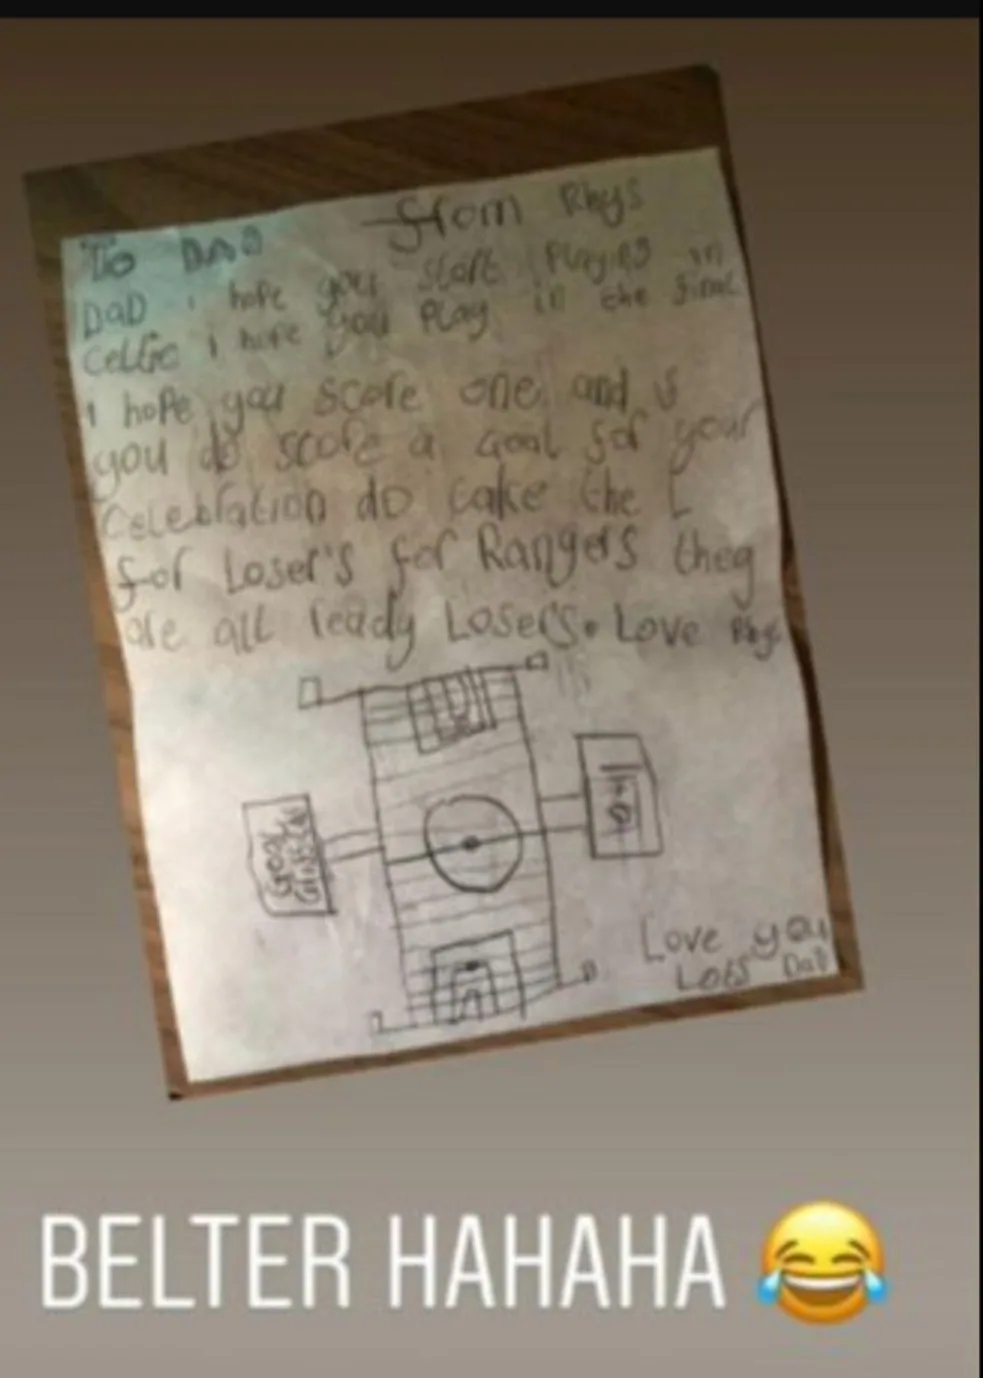 To DAD from Rhys
DAD i hope you start playing in
Celtic i hope you play in the final
I hope you score one and if
you do score a goal for your
Celebration do take the L
for Loser's for Rangers they
are all ready Losers. Love Rhys
Love you
Lots Dad
BELTER HAHAHA 😂